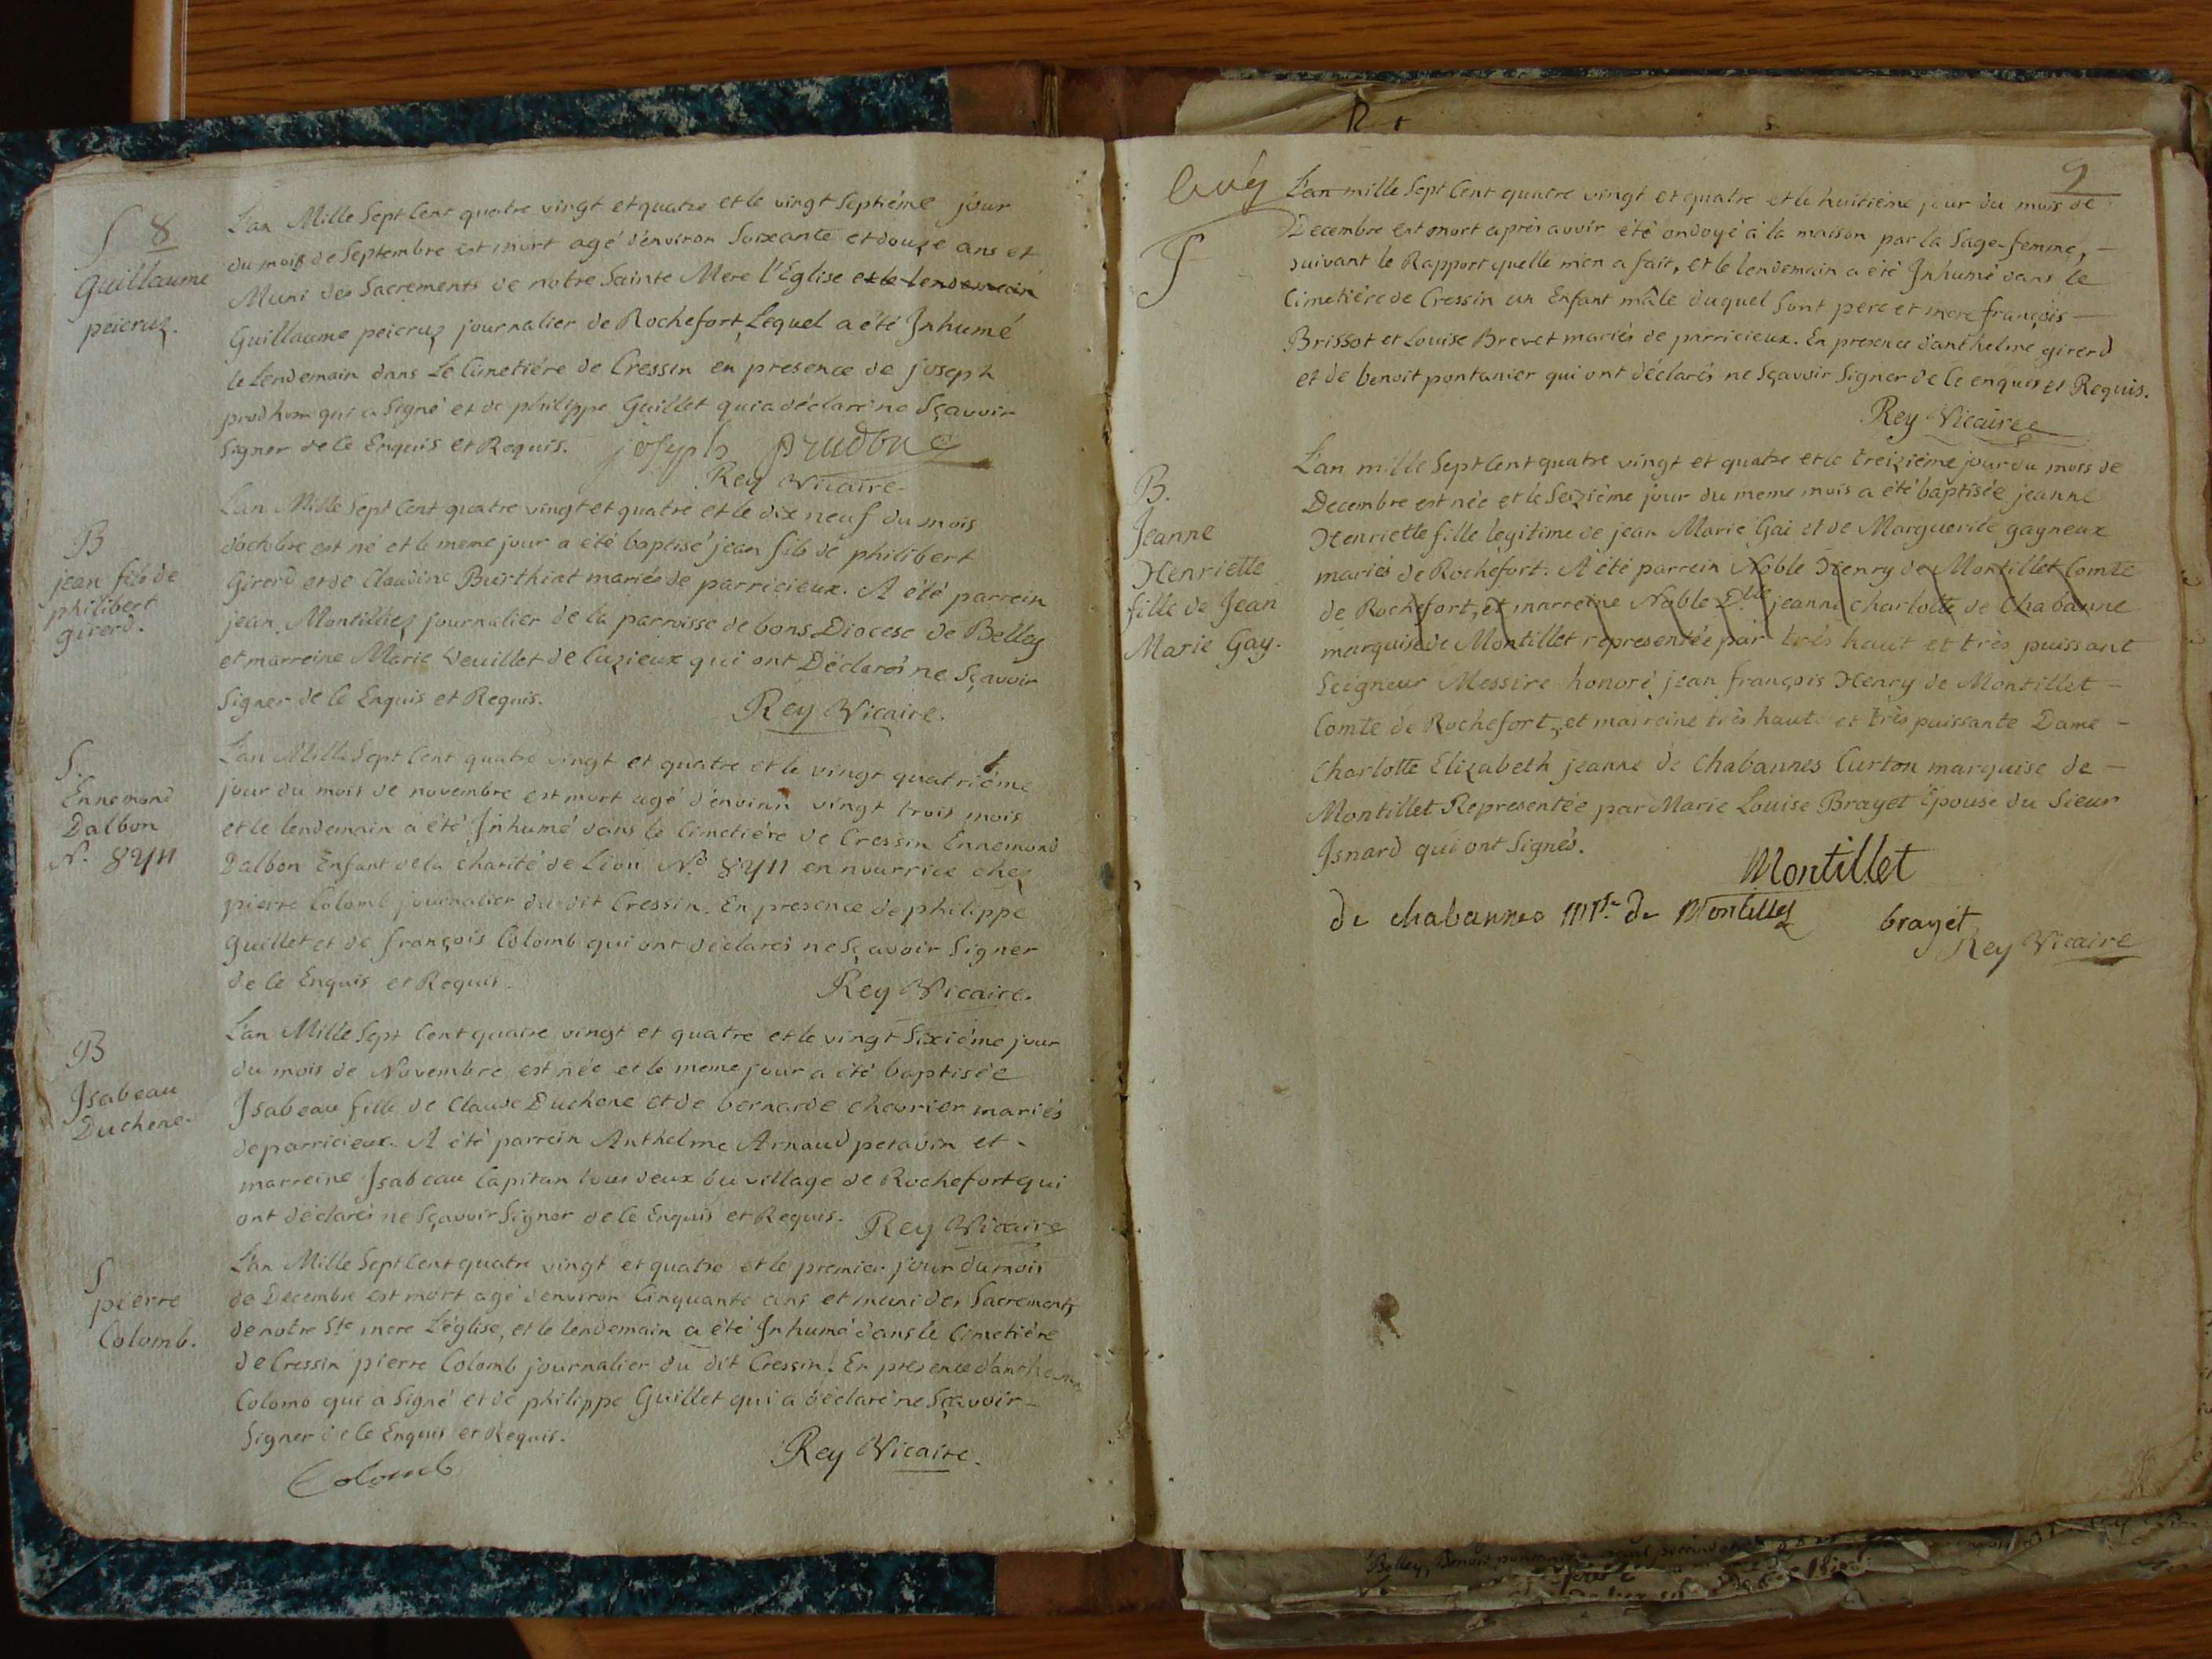 S 8
Guillaume
peicruz.
L'an Mille Sept Cent quatre vingt et quatre et le vingt Septiéme jour
du mois de Septembre est mort agé d'environ Soixante et douze ans et
Muni des Sacrements de notre Sainte Mere l'Eglise et le lendemain
Guillaume peicruz journalier de Rochefort, Lequel a été Inhumé
le Lendemain dans Le Cimetiére de Cressin en presence de joseph
prudhom qui a Signé et de philippe Guillet qui a déclaré ne Sçavoir
Signer de Ce Enquis et Requis. joseph prudon
Rey Vicaire
B
jean fils de
philibert
girerd.
L'an Mille Sept Cent quatre vingt et quatre et le dix neuf du mois
d'octobre est né et le meme jour a été baptisé jean fils de philibert
Girerd et de Claudine Burthiat mariés de parricieux. A été parrein
jean Montilliez journalier de la parroisse de bons Diocese de Belley
et marreine Marie Veuillet de Cuzieux qui ont Déclarés ne Sçavoir
Signer de Ce Enquis et Requis.
Rey Vicaire.
S.
Ennemond
Dalbon
N.º 8241
L'an Mille Sept Cent quatre vingt et quatre et le vingt quatriéme
jour du mois de novembre est mort agé d'environ vingt trois mois
et le lendemain a été Inhumé dans le Cimetiére de Cressin Ennemond
Dalbon Enfant de la Charité de Lion N.º 8241 en nourrice chez
pierre Colomb journalier du dit Cressin. En presence de philippe
Guillet et de françois Colomb qui ont déclarés ne Sçavoir Signer
de Ce Enquis et Requis.
Rey Vicaire.
B
Isabeau
Duchene.
L'an Mille Sept Cent quatre vingt et quatre et le vingt Sixiéme jour
du mois de Novembre est née et le meme jour a été baptisée
Isabeau fille de Claude Duchene et de bernarde chevrier mariés
de parricieux. A été parrein Anthelme Arnaud peravin et -
marreine Isabeau Capitan tous deux du village de Rochefort qui
ont déclarés ne Sçavoir Signer de Ce Enquis et Requis. Rey Vicaire
S
pierre
Colomb.
L'an Mille Sept Cent quatre vingt et quatre et le premier jour du mois
de Decembre est mort agé d'environ Cinquante ans et muni des Sacrements
de notre Ste mere L'église, et le lendemain a été Inhumé dans le Cimetiére
de Cressin pierre Colomb journalier du dit Cressin. En presence d'anthelme
Colomb qui a Signé et de philippe Guillet qui a déclaré ne Sçavoir -
Signer de Ce Enquis et Requis.
Colomb
Rey Vicaire.
9
S
L'an mille Sept Cent quatre vingt et quatre et le huitiéme jour du mois de
Decembre est mort après avoir été ondoyé à la maison par la Sage-femme, -
suivant le Rapport quelle m'en a fait, et le lendemain a été Inhumé dans le
Cimetiére de Cressin un Enfant mâle duquel Sont pere et mere françois -
Brissot et Louise Brevet mariés de parricieux. En presence d'anthelme girerd
et de benoit pontanier qui ont déclarés ne Sçavoir Signer de Ce enquis et Requis.
Rey Vicaire
B.
Jeanne
Henriette
fille de Jean
Marie Gay.
L'an mille Sept Cent quatre vingt et quatre et le treiziéme jour du mois de
Decembre est née et le Seiziéme jour du meme mois a été baptisée jeanne
Henriette fille legitime de jean Marie Gai et de Marguerite gagneux
mariés de Rochefort. A été parrein Noble Henry de Montillet Comte
de Rochefort, et marreine Noble Dlle jeanne charlotte de Chabanne
marquise de Montillet representée par très haut et très puissant
Seigneur Messire honoré jean françois Henry de Montillet -
Comte de Rochefort, et marreine très haute et très puissante Dame -
Charlotte Elizabeth jeanne de Chabannes Curton marquise de -
Montillet Representée par Marie Louise Brayet Epouse du Sieur
Isnard qui ont Signés.
Montillet
de chabannes Mise de Montillet
brayet
Rey Vicaire